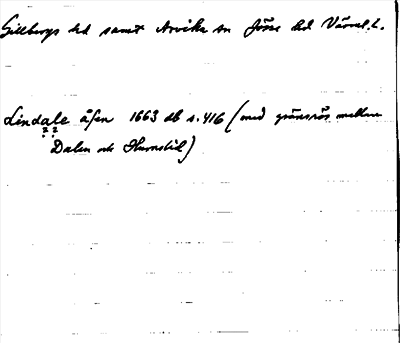 Gillbergs hd samt Arvika sn Jösse hd Värml.l.
Lindale åsen 1663 db s. 416 (med gränsrös mellan
?? Dalen och Humstil)